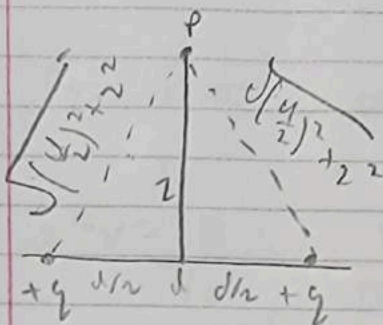 P
√(d/2)² + z²
√(d/2)² + z²
z
+q d/2 d d/2 +q